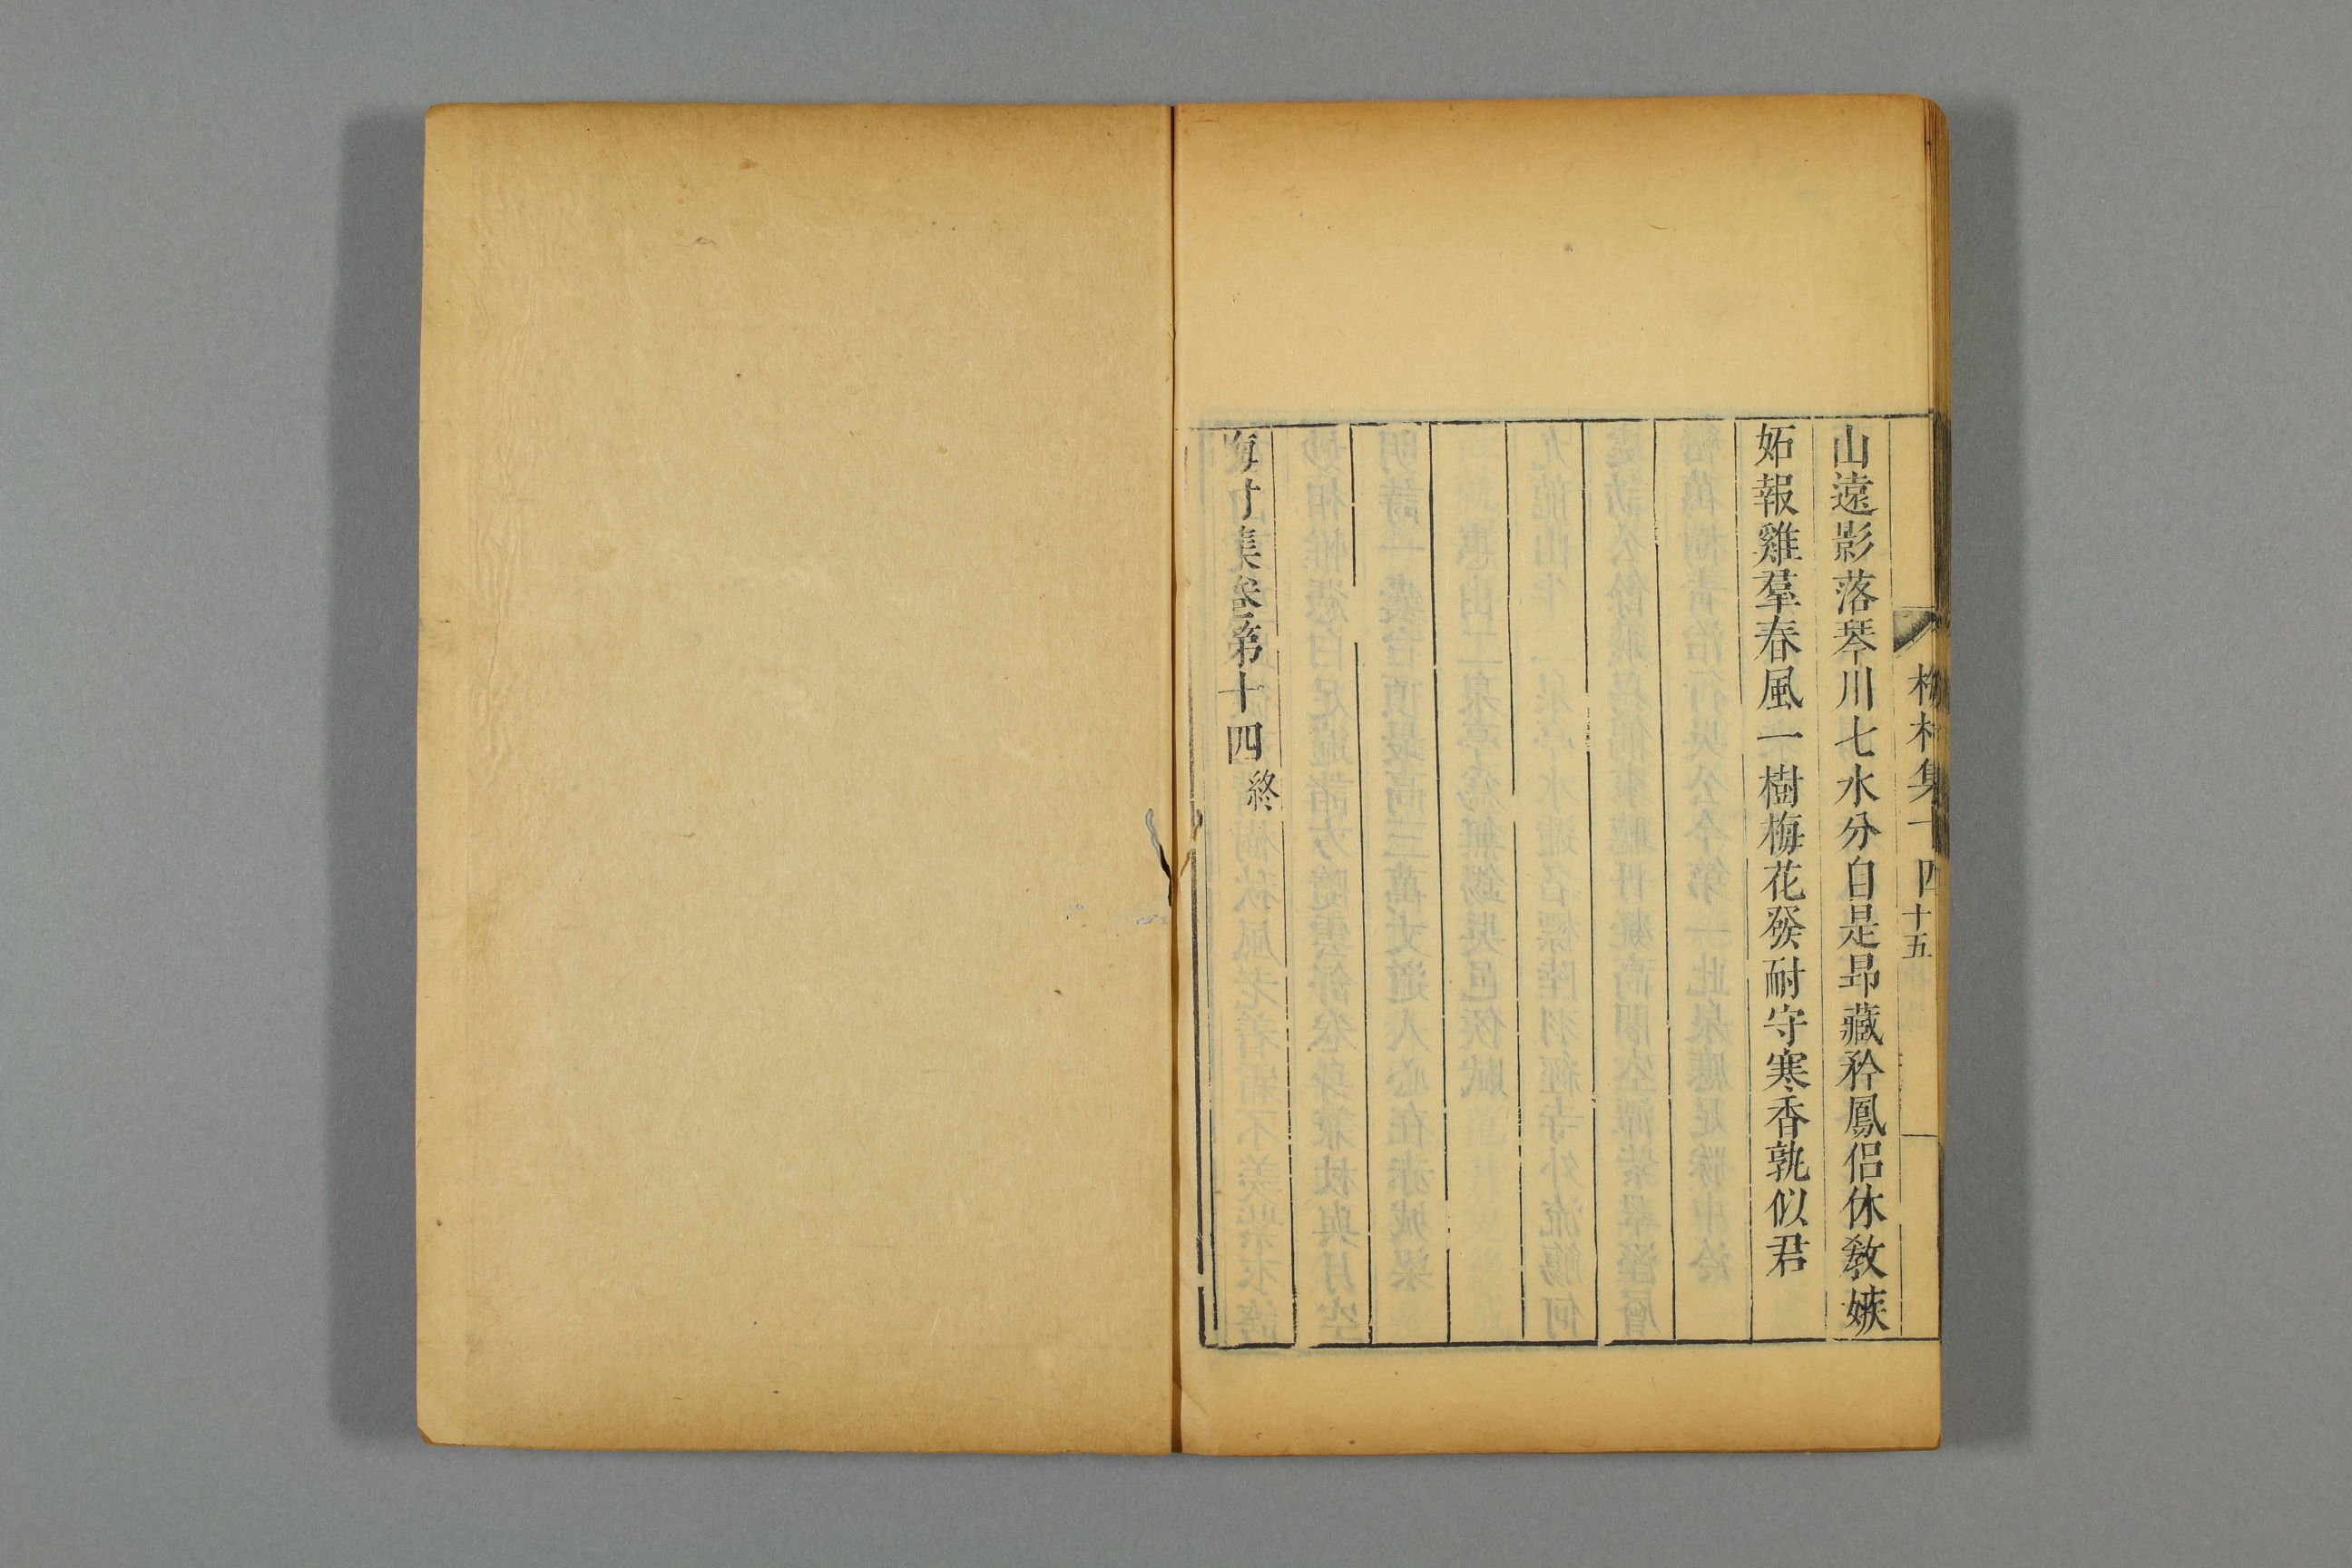 梅村集十四
十五
山遠影落琴川七水分自是昻藏矜鳳侣休教嫉
妬報雞羣春風一樹梅花發耐守寒香孰似君
梅村集卷第十四終